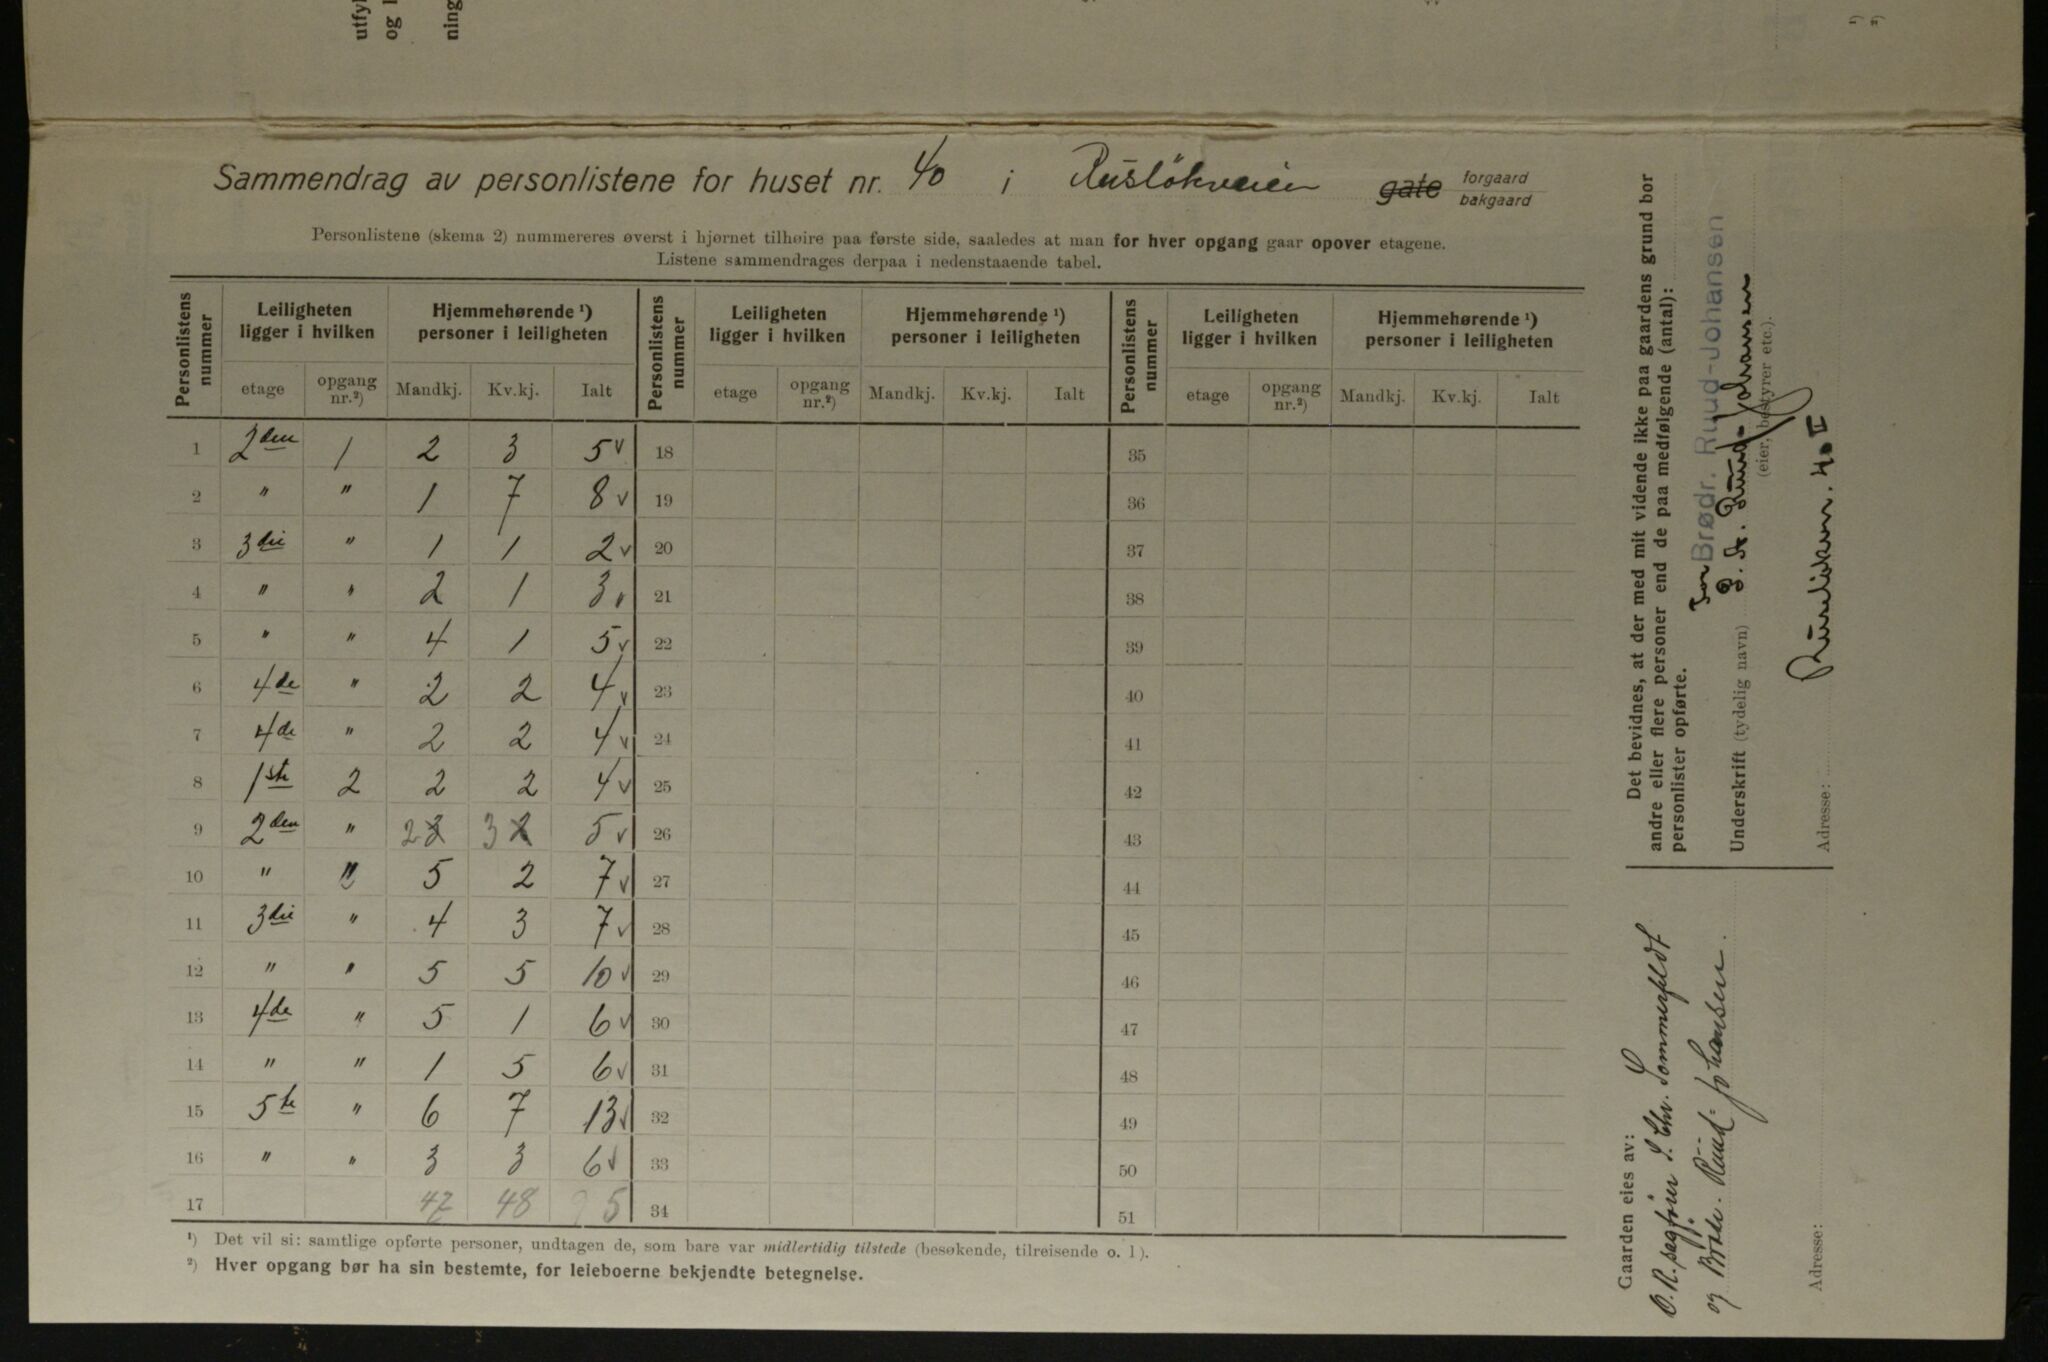 utfyl
og l
ning
Sammendrag av personlistene for huset nr. 40 i Ruslökveien gate forgaard bakgaard
Personlistene (skema 2) nummereres øverst i hjørnet tilhøire paa første side, saaledes at man for hver opgang gaar opover etagene.
Listene sammendrages derpaa i nedenstaaende tabel.
Personlistens nummer | Leiligheten ligger i hvilken | Hjemmehørende ¹) personer i leiligheten | Personlistens nummer | Leiligheten ligger i hvilken | Hjemmehørende ¹) personer i leiligheten | Personlistens nummer | Leiligheten ligger i hvilken | Hjemmehørende ¹) personer i leiligheten
etage | opgang nr.²) | Mandkj. | Kv.kj. | Ialt | etage | opgang nr.²) | Mandkj. | Kv.kj. | Ialt | etage | opgang nr.²) | Mandkj. | Kv.kj. | Ialt
1 2den 1 2 3 5 v 18 35
2 " " 1 7 8 v 19 36
3 3die " 1 1 2 v 20 37
4 " " 2 1 3 v 21 38
5 " " 4 1 5 v 22 39
6 4de " 2 2 4 v 23 40
7 4de " 2 2 4 v 24 41
8 1ste 2 2 2 4 v 25 42
9 2den " 2 3 3 2 5 v 26 43
10 " " 5 2 7 v 27 44
11 3die " 4 3 7 v 28 45
12 " " 5 5 10 v 29 46
13 4de " 5 1 6 v 30 47
14 " " 1 5 6 v 31 48
15 5te " 6 7 13 v 32 49
16 " " 3 3 6 v 33 50
17 47 48 95 34 51
¹) Det vil si: samtlige opførte personer, undtagen de, som bare var midlertidig tilstede (besøkende, tilreisende o. l).
²) Hver opgang bør ha sin bestemte, for leieboerne bekjendte betegnelse.
Det bevidnes, at der med mit vidende ikke paa gaardens grund bor
andre eller flere personer end de paa medfølgende (antal):
personlister opførte.
For Brødr. Ruud-Johansen
Underskrift (tydelig navn) J. A. Ruud-Johansen
(eier, bestyrer etc.).
Adresse: Ruselökvn. 40 II
Gaarden eies av:
O.R. sagfører S. Chr. Sommerfeldt
og Brødr. Ruud-Johansen.
Adresse: